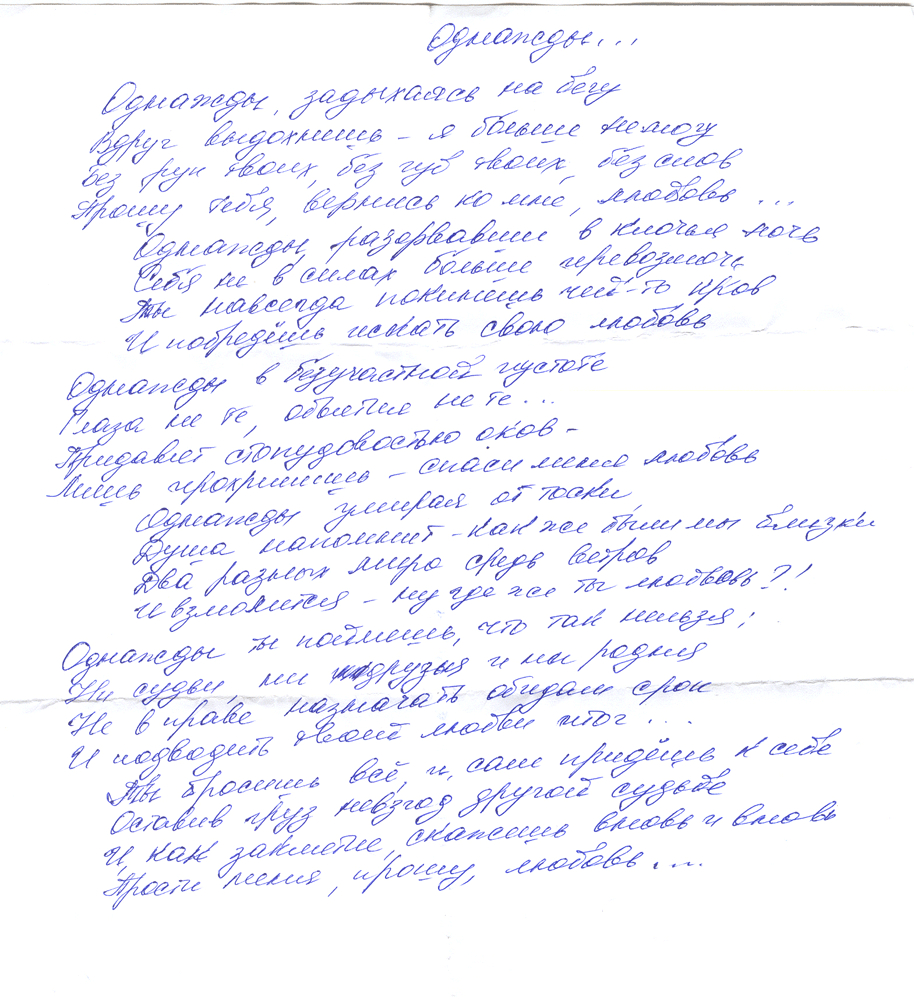 Однажды...
Однажды, задыхаясь на бегу
Вдруг выдохнешь – я больше не могу
Без рук твоих, без губ твоих, без слов
Прошу тебя, вернись ко мне, любовь...
Однажды, разорвавши в клочья ночь
Себя не в силах больше превозмочь
Ты навсегда покинешь чей-то кров
И побредёшь искать свою любовь
Однажды в безучастной пустоте
Глаза не те, объятия не те...
Придавлет стопудовостью оков –
Лишь прохрипишь – спаси меня любовь
Однажды умирая от тоски
Душа напомнит – как же были мы близки
Два разных мира средь ветров
И взмолится – ну где же ты любовь?!
Однажды ты поймешь, что так нельзя;
Ни судьи, ни друзья и ни родня
Не в праве назначать обидам срок
И подводить твоей любви итог...
Ты бросишь всё, и, сам придёшь к себе
Оставив груз невзгод другой судьбе
И, как заклятие, скажешь вновь и вновь
Прости меня, прошу, любовь....